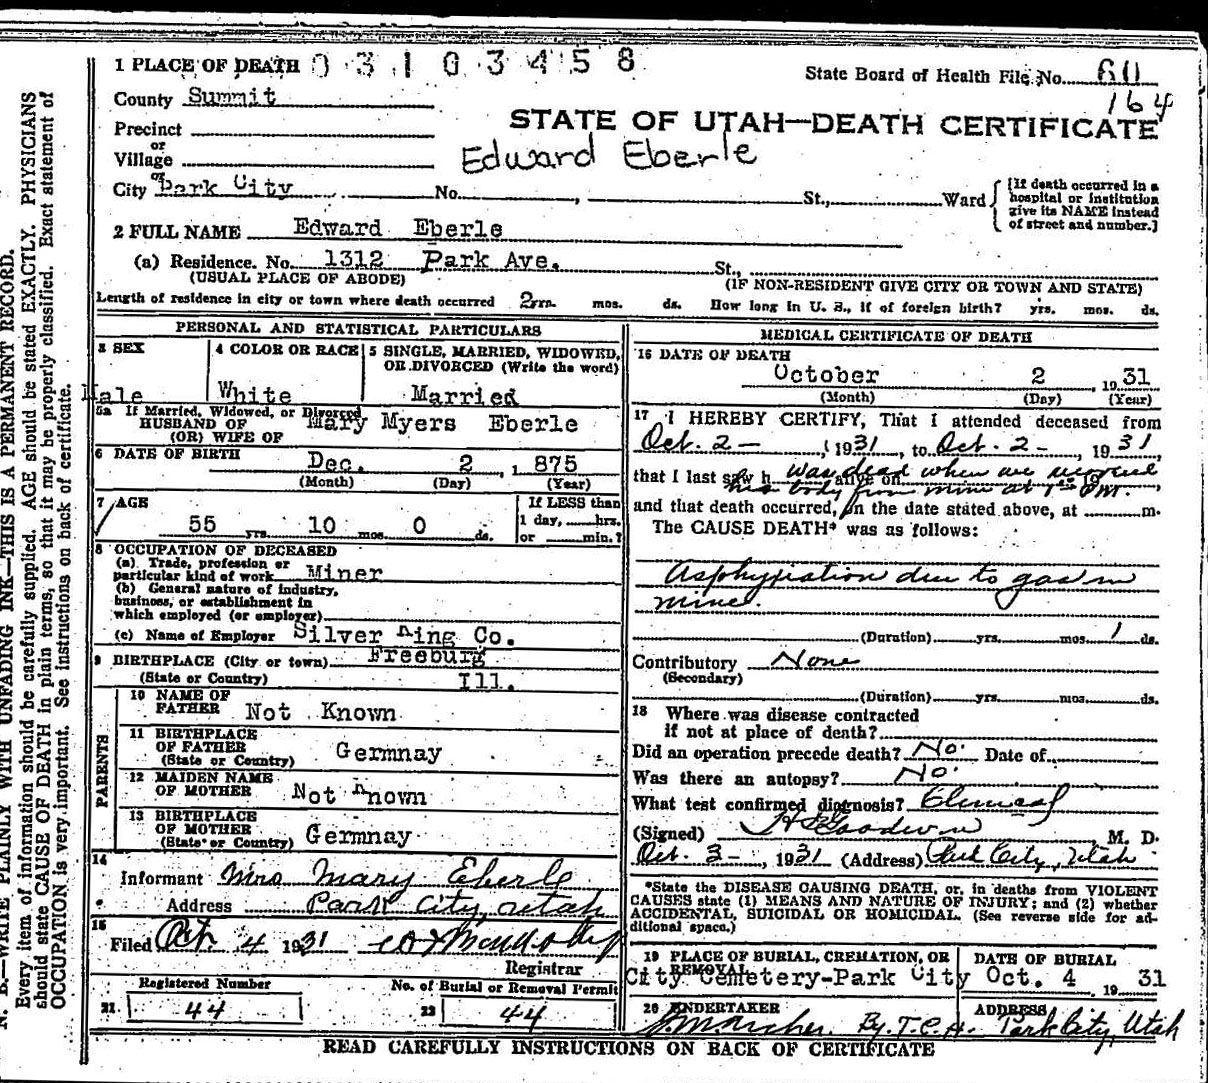 1 PLACE OF DEATH 03103458
State Board of Health File No. 60
164
County Summit
STATE OF UTAH—DEATH CERTIFICATE
Precinct
or
Village
Edward Eberle
or
City Park City No. , St., Ward
[If death occurred in a hospital or institution give its NAME instead of street and number.]
2 FULL NAME Edward Eberle
(a) Residence. No. 1312 Park Ave. St.,
(USUAL PLACE OF ABODE) (IF NON-RESIDENT GIVE CITY OR TOWN AND STATE)
Length of residence in city or town where death occurred 2 yrs. mos. ds. How long in U. S., if of foreign birth? yrs. mos. ds.
PERSONAL AND STATISTICAL PARTICULARS
3 SEX
Male
4 COLOR OR RACE
White
5 SINGLE, MARRIED, WIDOWED,
OR DIVORCED (Write the word)
Married
5a If Married, Widowed, or Divorced
HUSBAND OF
(OR) WIFE OF
Mary Myers Eberle
6 DATE OF BIRTH Dec. 2 , 1 875
(Month) (Day) (Year)
7 AGE
55 yrs. 10 mos. 0 ds.
If LESS than
1 day, hrs.
or min.?
8 OCCUPATION OF DECEASED
(a) Trade, profession or
particular kind of work Miner
(b) General nature of industry,
business, or establishment in
which employed (or employer)
(c) Name of Employer Silver King Co.
9 BIRTHPLACE (City or town) Freeburg
(State or Country) Ill.
PARENTS
10 NAME OF
FATHER Not Known
11 BIRTHPLACE
OF FATHER
(State or Country) Germnay
12 MAIDEN NAME
OF MOTHER Not Known
13 BIRTHPLACE
OF MOTHER
(State or Country) Germnay
14
Informant Mrs Mary Eberle
Address Park City, Utah
15
Filed Oct 4 1931
Registrar
Registered Number
21 44
No. of Burial or Removal Permit
22 44
MEDICAL CERTIFICATE OF DEATH
16 DATE OF DEATH
October 2 , 19 31
(Month) (Day) (Year)
17 I HEREBY CERTIFY, That I attended deceased from
Oct. 2 - , 1931, to Oct. 2 - , 1931
that I last saw h alive on 19
was dead when we
his body from mine at P.M.
and that death occurred, on the date stated above, at m.
The CAUSE DEATH* was as follows:
Asphyxiation due to gas in
mine.
(Duration) yrs. mos. 1 ds.
Contributory None
(Secondary)
(Duration) yrs. mos. ds.
18 Where was disease contracted
if not at place of death?
Did an operation precede death? No. Date of
Was there an autopsy? No.
What test confirmed diagnosis? Clinical
(Signed) H S Goodwin M. D.
Oct. 3 - , 1931 (Address) Park City, Utah
*State the DISEASE CAUSING DEATH, or, in deaths from VIOLENT
CAUSES state (1) MEANS AND NATURE OF INJURY; and (2) whether
ACCIDENTAL, SUICIDAL OR HOMICIDAL. (See reverse side for ad-
ditional space.)
19 PLACE OF BURIAL, CREMATION, OR
REMOVAL
City Cemetery-Park City
DATE OF BURIAL
Oct. 4 , 19 31
20 UNDERTAKER
J. M. Archer. By. T. C. A.
ADDRESS
Park City, Utah
READ CAREFULLY INSTRUCTIONS ON BACK OF CERTIFICATE
N. B.—WRITE PLAINLY WITH UNFADING INK—THIS IS A PERMANENT RECORD.
Every item of information should be carefully supplied. AGE should be stated EXACTLY. PHYSICIANS
should state CAUSE OF DEATH in plain terms, so that it may be properly classified. Exact statement of
OCCUPATION is very important. See instructions on back of certificate.